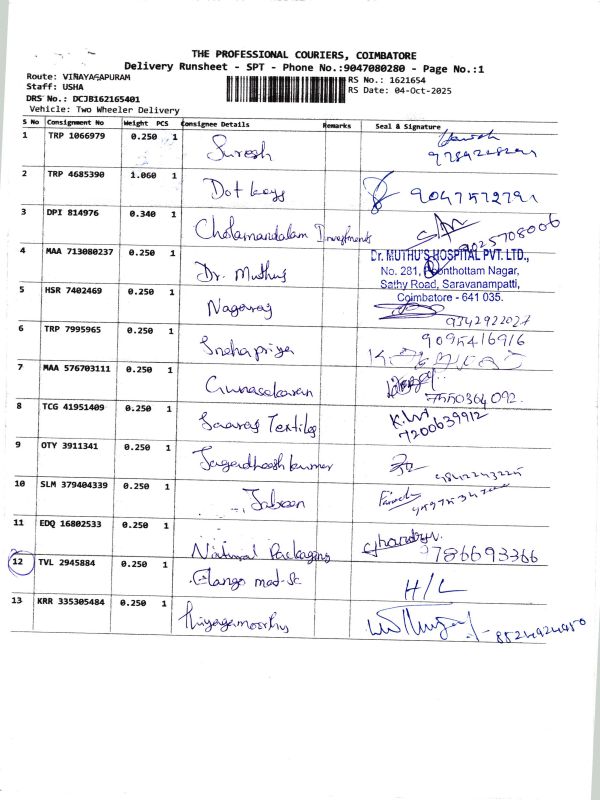 THE PROFESSIONAL COURIERS, COIMBATORE
Delivery Runsheet - SPT - Phone No.:9047080280 - Page No.:1
Route: VINAYAGAPURAM
Staff: USHA
DRS No.: DCJB162165401
Vehicle: Two Wheeler Delivery
RS No.: 1621654
RS Date: 04-Oct-2025
S No Consignment No Weight PCS Consignee Details Remarks Seal & Signature
1 TRP 1066979 0.250 1 Suresh
2 TRP 4685390 1.060 1 Dot keys 9047572791
3 DPI 814976 0.340 1 Cholamandalam Investments 9025708006
4 MAA 713080237 0.250 1 Dr. Muthus
Dr. MUTHU'S HOSPITAL PVT. LTD.,
No. 281, Poonthottam Nagar,
Sathy Road, Saravanampatti,
Coimbatore - 641 035.
5 HSR 7402469 0.250 1 Nagaraj 9342922027
6 TRP 7995965 0.250 1 Snehapriya 9095416916
7 MAA 576703111 0.250 1 Gunasekaran 7550364092
8 TCG 41951409 0.250 1 Saaraj Textiles 7200639912
9 OTY 3911341 0.250 1 Jagardheesh kumar
10 SLM 379404339 0.250 1 Jabeen
11 EDQ 16802533 0.250 1 Natural Packaging 9786693366
12 TVL 2945884 0.250 1 Elango mat-Sc H/L
13 KRR 335305484 0.250 1 Thiyagamoorthy 8524924950